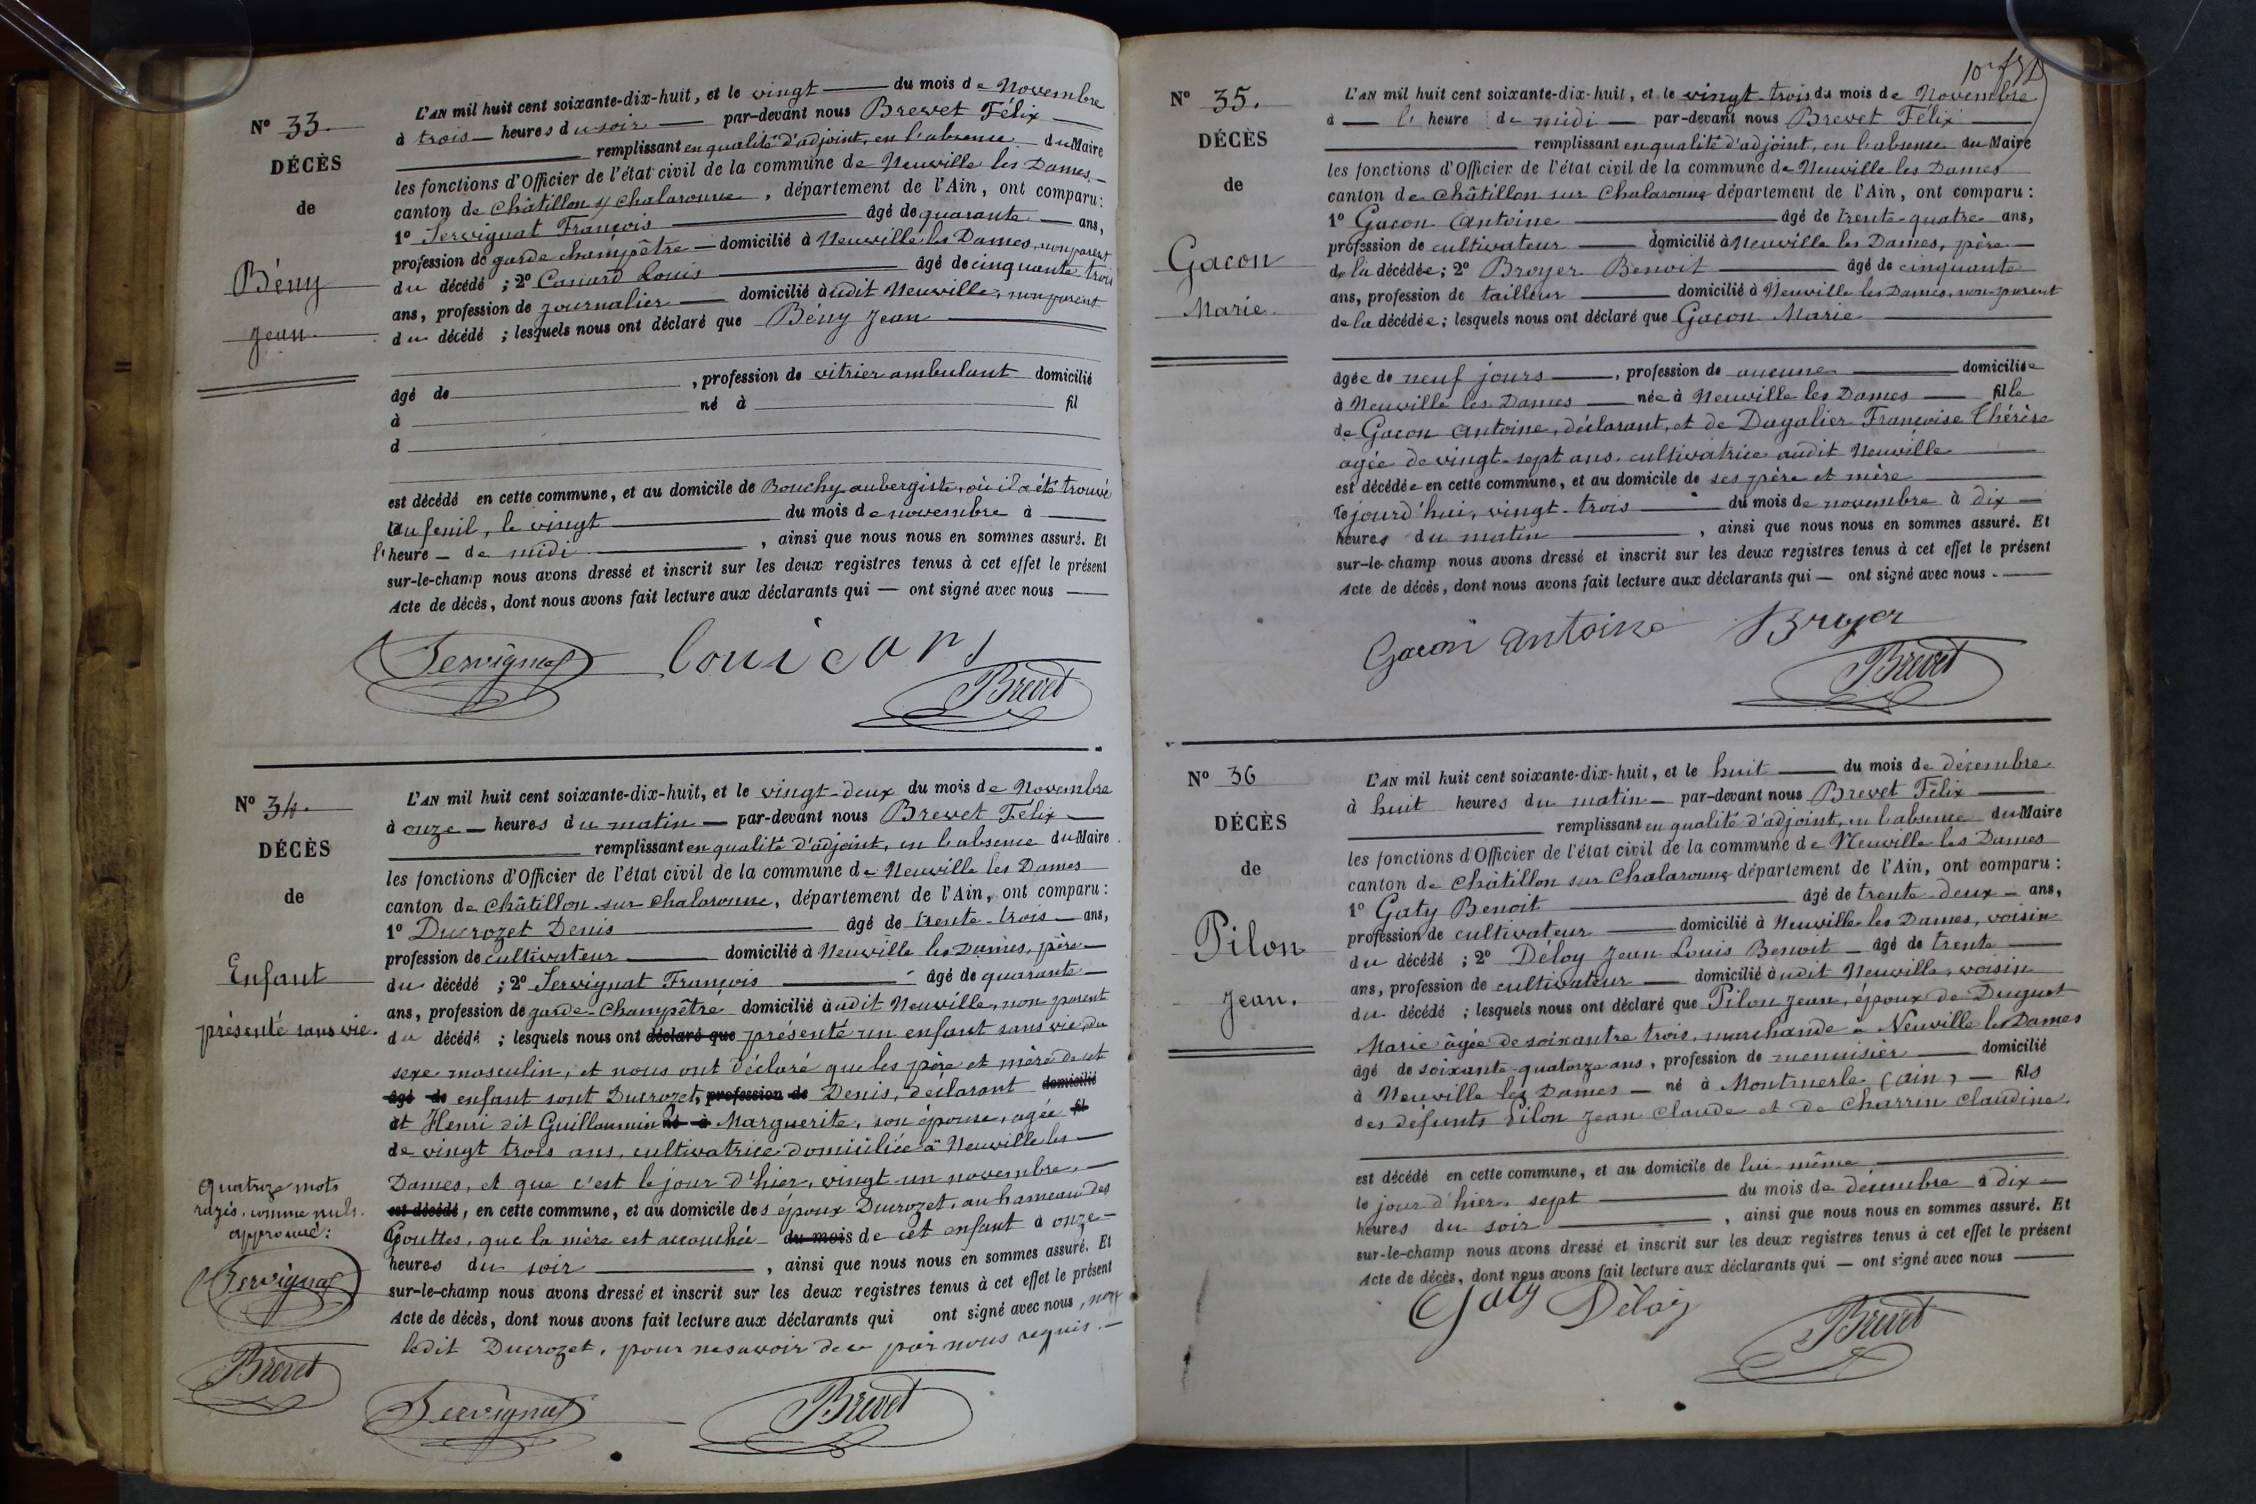 N° 33.
DÉCÈS
de
Bény
Jean.
L'AN mil huit cent soixante-dix-huit, et le vingt du mois de Novembre
à trois heures du soir par-devant nous Brevet Félix
remplissant en qualité d'adjoint, en l'absence du Maire
les fonctions d'Officier de l'état civil de la commune de Neuville les Dames
canton de Châtillon s/ Chalaronne, département de l'Ain, ont comparu :
1° Servignat François âgé de quarante ans,
profession de garde champêtre domicilié à Neuville les Dames, non parent
du décédé ; 2° Canard Louis âgé de cinquante trois
ans, profession de journalier domicilié à udit Neuville, non parent
du décédé ; lesquels nous ont déclaré que Bény Jean
âgé de , profession de vitrier ambulant domicilié
à né à fil
d
est décédé en cette commune, et au domicile de Bouchy aubergiste, où il a été trouvé
au fenil, le vingt du mois de novembre à
l'heure de midi , ainsi que nous nous en sommes assuré. Et
sur-le-champ nous avons dressé et inscrit sur les deux registres tenus à cet effet le présent
Acte de décès, dont nous avons fait lecture aux déclarants qui — ont signé avec nous
Servignat Brevet
N° 34.
DÉCÈS
de
Enfant
présenté sans vie.
L'AN mil huit cent soixante-dix-huit, et le vingt-deux du mois de Novembre
à onze heures du matin par-devant nous Brevet Félix
remplissant en qualité d'adjoint, en l'absence du Maire
les fonctions d'Officier de l'état civil de la commune de Neuville les Dames
canton de Châtillon sur Chalaronne, département de l'Ain, ont comparu :
1° Ducrozet Denis âgé de trente-trois ans,
profession de cultivateur domicilié à Neuville les Dames, père
du décédé ; 2° Servignat François âgé de quarante
ans, profession de garde-champêtre domicilié à udit Neuville, non parent
du décédé ; lesquels nous ont déclaré que présenté un enfant sans vie, du
sexe masculin, et nous ont déclaré que les père et mère de cet
âgé de enfant sont Ducrozet, profession de Denis, déclarant domicilié
et Henri dit Guillaumin né à Marguerite, son épouse, agée fil
de vingt trois ans, cultivatrice domiciliée à Neuville les
Dames, et que c'est le jour d'hier, vingt-un novembre,
est décédé, en cette commune, et au domicile des époux Ducrozet, au hameau des
Gouttes, que la mère est accouchée du mois de cet enfant à onze
heures du soir , ainsi que nous nous en sommes assuré. Et
sur-le-champ nous avons dressé et inscrit sur les deux registres tenus à cet effet le présent
Acte de décès, dont nous avons fait lecture aux déclarants qui ont signé avec nous, non
ledit Ducrozet, pour ne savoir de ce par nous requis.
Quatorze mots
rayés comme nuls.
approuvé :
Servignat
Brevet
Servignat Brevet
N° 35.
DÉCÈS
de
Gacon
Marie.
L'AN mil huit cent soixante-dix-huit, et le vingt-trois du mois de Novembre
à l' heure de midi par-devant nous Brevet Félix
remplissant en qualité d'adjoint, en l'absence du Maire
les fonctions d'Officier de l'état civil de la commune de Neuville les Dames
canton de Châtillon sur Chalaronne département de l'Ain, ont comparu :
1° Gacon Antoine âgé de trente-quatre ans,
profession de cultivateur domicilié à Neuville les Dames, père
de la décédée ; 2° Broyer Benoit âgé de cinquante
ans, profession de tailleur domicilié à Neuville les Dames, non-parent
de la décédée ; lesquels nous ont déclaré que Gacon Marie
âgée de neuf jours , profession de aucune domiciliée
à Neuville les Dames née à Neuville les Dames fille
de Gacon Antoine, déclarant, et de Dagalier Françoise Thérèse
agée de vingt-sept ans, cultivatrice audit Neuville
est décédée en cette commune, et au domicile de ses père et mère
cejourd'hui, vingt-trois du mois de novembre à dix
heures du matin , ainsi que nous nous en sommes assuré. Et
sur-le-champ nous avons dressé et inscrit sur les deux registres tenus à cet effet le présent
Acte de décès, dont nous avons fait lecture aux déclarants qui — ont signé avec nous.
Gacon antoine Broyer
Brevet
N° 36
DÉCÈS
de
Pilon
Jean.
L'AN mil huit cent soixante-dix-huit, et le huit du mois de décembre
à huit heures du matin par-devant nous Brevet Félix
remplissant en qualité d'adjoint, en l'absence du Maire
les fonctions d'Officier de l'état civil de la commune de Neuville les Dames
canton de Châtillon sur Chalaronne département de l'Ain, ont comparu :
1° Gaty Benoit âgé de trente-deux ans,
profession de cultivateur domicilié à Neuville les Dames, voisin
du décédé ; 2° Déloy Jean Louis Benoit âgé de trente
ans, profession de cultivateur domicilié à udit Neuville, voisin
du décédé ; lesquels nous ont déclaré que Pilon Jean, époux de Duguet
Marie âgée de soixantre trois, marchande à Neuville les Dames
âgé de soixante-quatorze ans, profession de menuisier domicilié
à Neuville les Dames né à Montmerle (Ain) fils
des défunts Pilon Jean Claude et de Charrin Claudine.
est décédé en cette commune, et au domicile de lui-même
le jour d'hier, sept du mois de décembre à dix
heures du soir , ainsi que nous nous en sommes assuré. Et
sur-le-champ nous avons dressé et inscrit sur les deux registres tenus à cet effet le présent
Acte de décès, dont nous avons fait lecture aux déclarants qui — ont signé avec nous
Gaty Déloy
Brevet